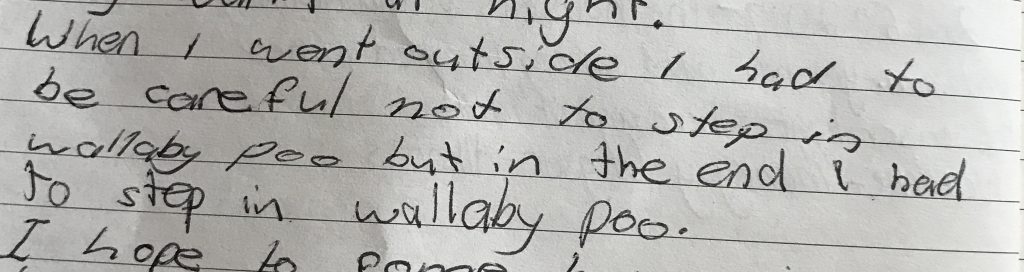 night.
When I went outside I had to
be careful not to step in
wallaby poo but in the end I had
to step in wallaby poo.
I hope to come